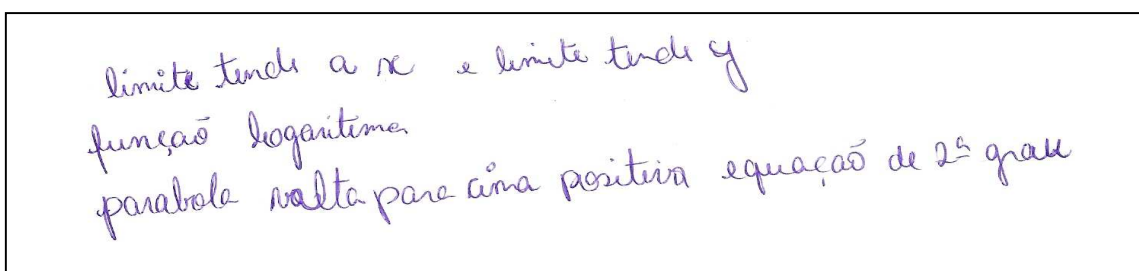 limite tende a x e limite tende y
função logaritima
parabola valta para cima positiva equação de 2º grau